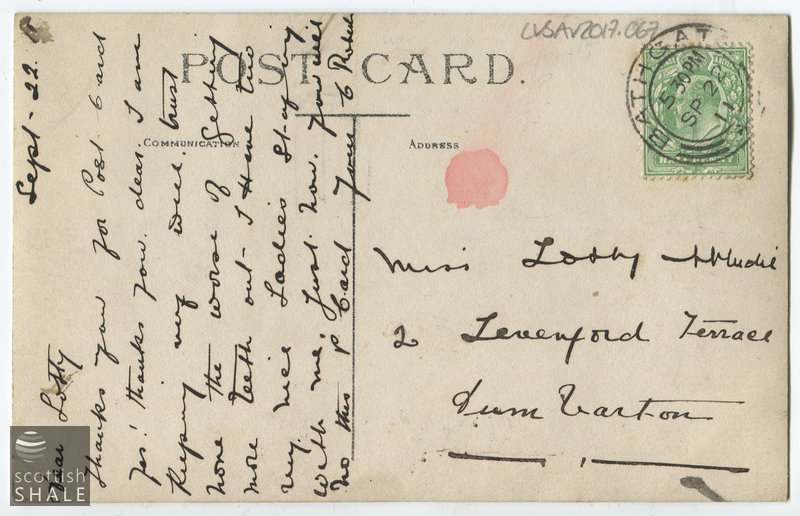 LVSAV2017.067
POST CARD.
COMMUNICATION
ADDRESS
BATHGATE
5.30PM
SP 22
11
HALFPENNY
Sept - 22
Dear Lotty
Thanks you for Post Card
yes! thanks you. dear. I am
keeping very well. trust
none the worse of getting
more teeth out - I Have two
very nice Ladies Staying
with me, Just now. you will
no this P Card
Miss Lotty
2 Levenford Terrace
Dumbarton
scottish
SHALE